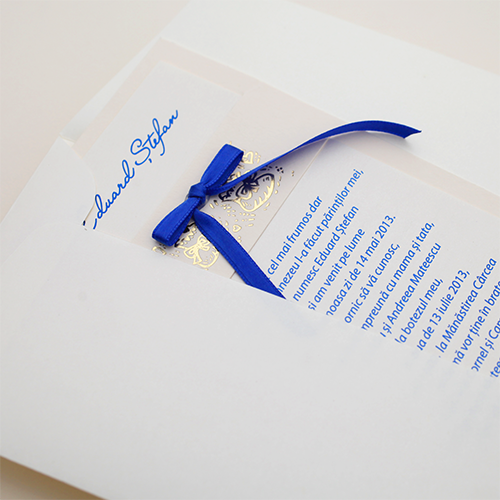 Eduard Ștefan
cel mai frumos dar
nezeu l-a făcut părinților mei,
numesc Eduard Ștefan
și am venit pe lume
noasa zi de 14 mai 2013.
ornic să vă cunosc,
mpreună cu mama și tata,
și Andreea Mateescu
la botezul meu,
a de 13 iulie 2013,
la Mănăstirea Cârcea
nă vor ține în brațe
ornel și